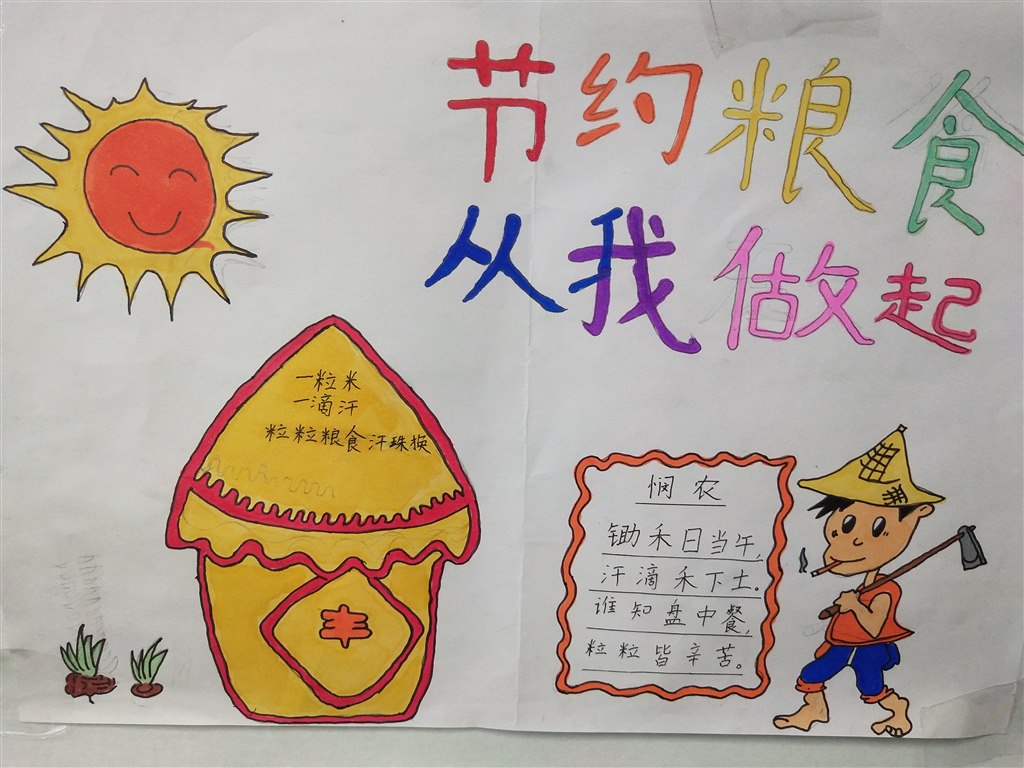 节约粮食
从我做起
一粒米
一滴汗
粒粒粮食汗珠换
悯农
锄禾日当午,
汗滴禾下土。
谁知盘中餐,
粒粒皆辛苦。